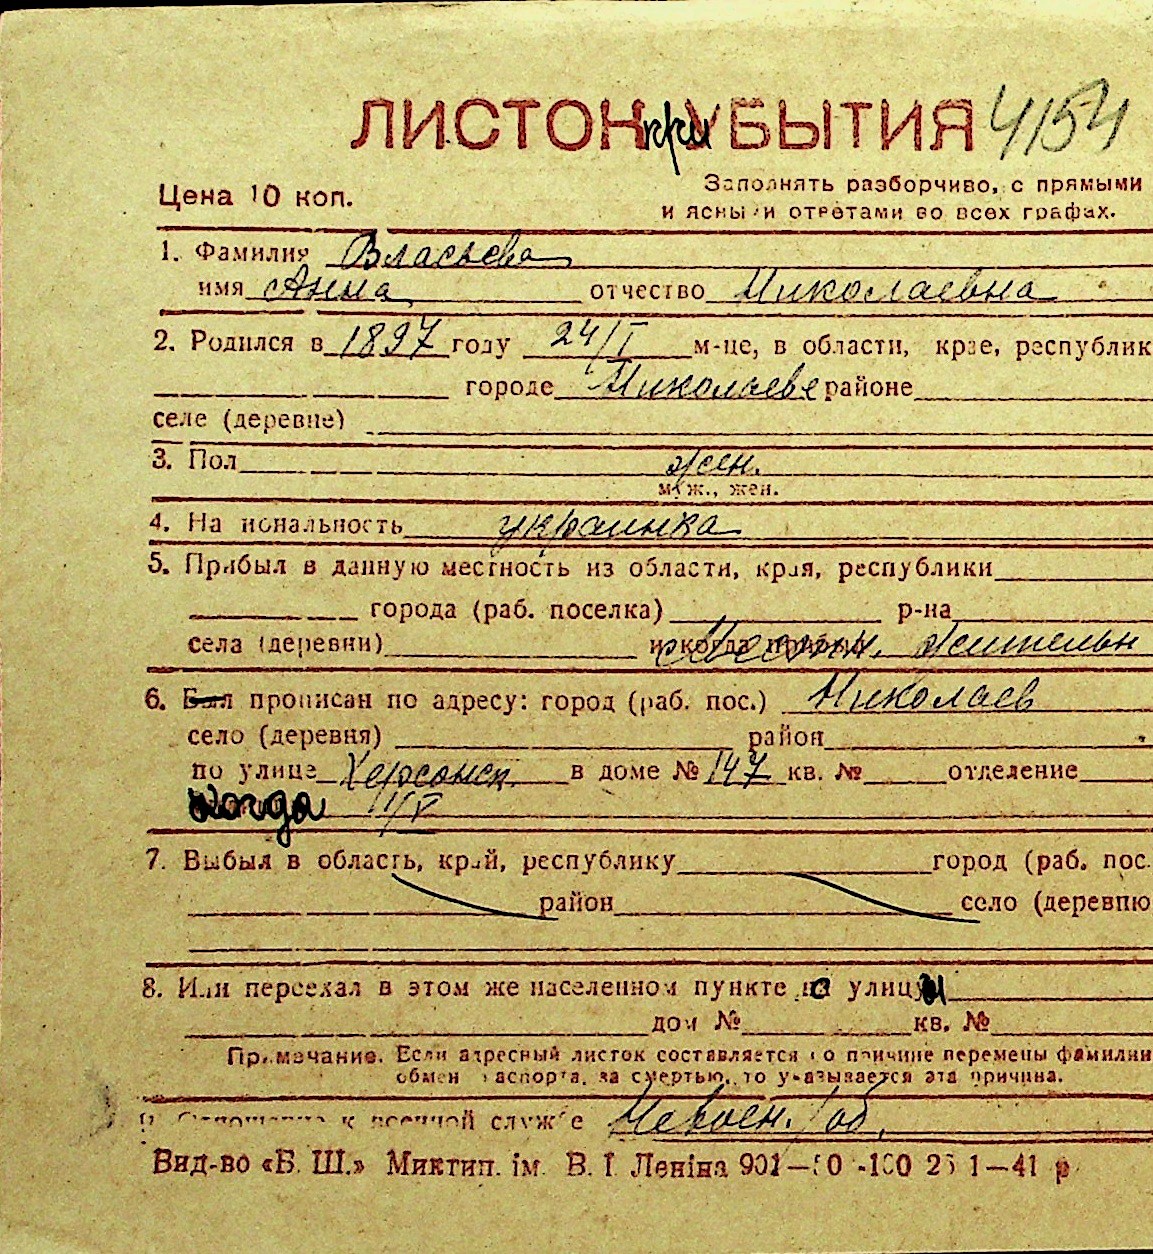 ЛИСТОК при УБЫТИЯ 4154
Цена 10 коп.
Заполнять разборчиво, с прямыми
и ясными ответами во всех графах.
1. Фамилия Власьева
имя Анна отчество Николаевна
2. Родился в 1897 году 24/I м-це, в области, крае, республик
городе Николаеве районе
селе (деревне)
3. Пол жен.
муж., жен.
4. Национальность украинка
5. Прибыл в данную местность из области, края, республики
города (раб. поселка) р-на
села (деревни) и когда прибыл Местн. жительн
6. Был прописан по адресу: город (раб. пос.) Николаев
село (деревня) район
по улице Херсонск. в доме № 147 кв. № отделение
когда 11/V
7. Выбыл в область, край, республику город (раб. пос.
район село (деревню
8. Или переехал в этом же населенном пункте с улицы
дом № кв. №
Примечание. Если адресный листок составляется по причине перемены фамилии
обмен паспорта, за смертью, то указывается эта причина.
9. Отношение к военной службе Невоен. об.
Вид-во «Б. Ш.» Миктип. ім. В. І Леніна 901—50 -100 25 1—41 р